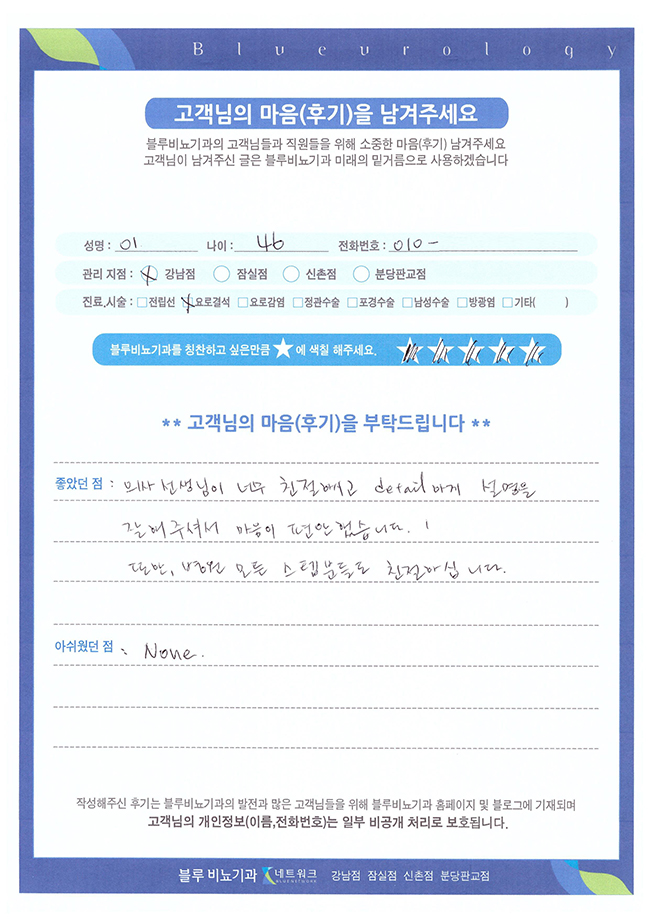 Blueurology
고객님의 마음(후기)을 남겨주세요
블루비뇨기과의 고객님들과 직원들을 위해 소중한 마음(후기) 남겨주세요
고객님이 남겨주신 글은 블루비뇨기과 미래의 밑거름으로 사용하겠습니다
성명 : 이 나이 : 46 전화번호 : 010 -
관리 지점 : 강남점 잠실점 신촌점 분당판교점
진료,시술 : 전립선 요로결석 요로감염 정관수술 포경수술 남성수술 방광염 기타( )
블루비뇨기과를 칭찬하고 싶은만큼 ★에 색칠 해주세요.
** 고객님의 마음(후기)을 부탁드립니다 **
좋았던 점 : 의사 선생님이 너무 친절하고 detail하게 설명을
잘 해주셔서 마음이 편안했습니다. !
또한, 병원 모든 스텝분들도 친절하십니다.
아쉬웠던 점 : None.
작성해주신 후기는 블루비뇨기과의 발전과 많은 고객님들을 위해 블루비뇨기과 홈페이지 및 블로그에 기재되며
고객님의 개인정보(이름,전화번호)는 일부 비공개 처리로 보호됩니다.
블루 비뇨기과 네트워크 BLUENETWORK 강남점 잠실점 신촌점 분당판교점